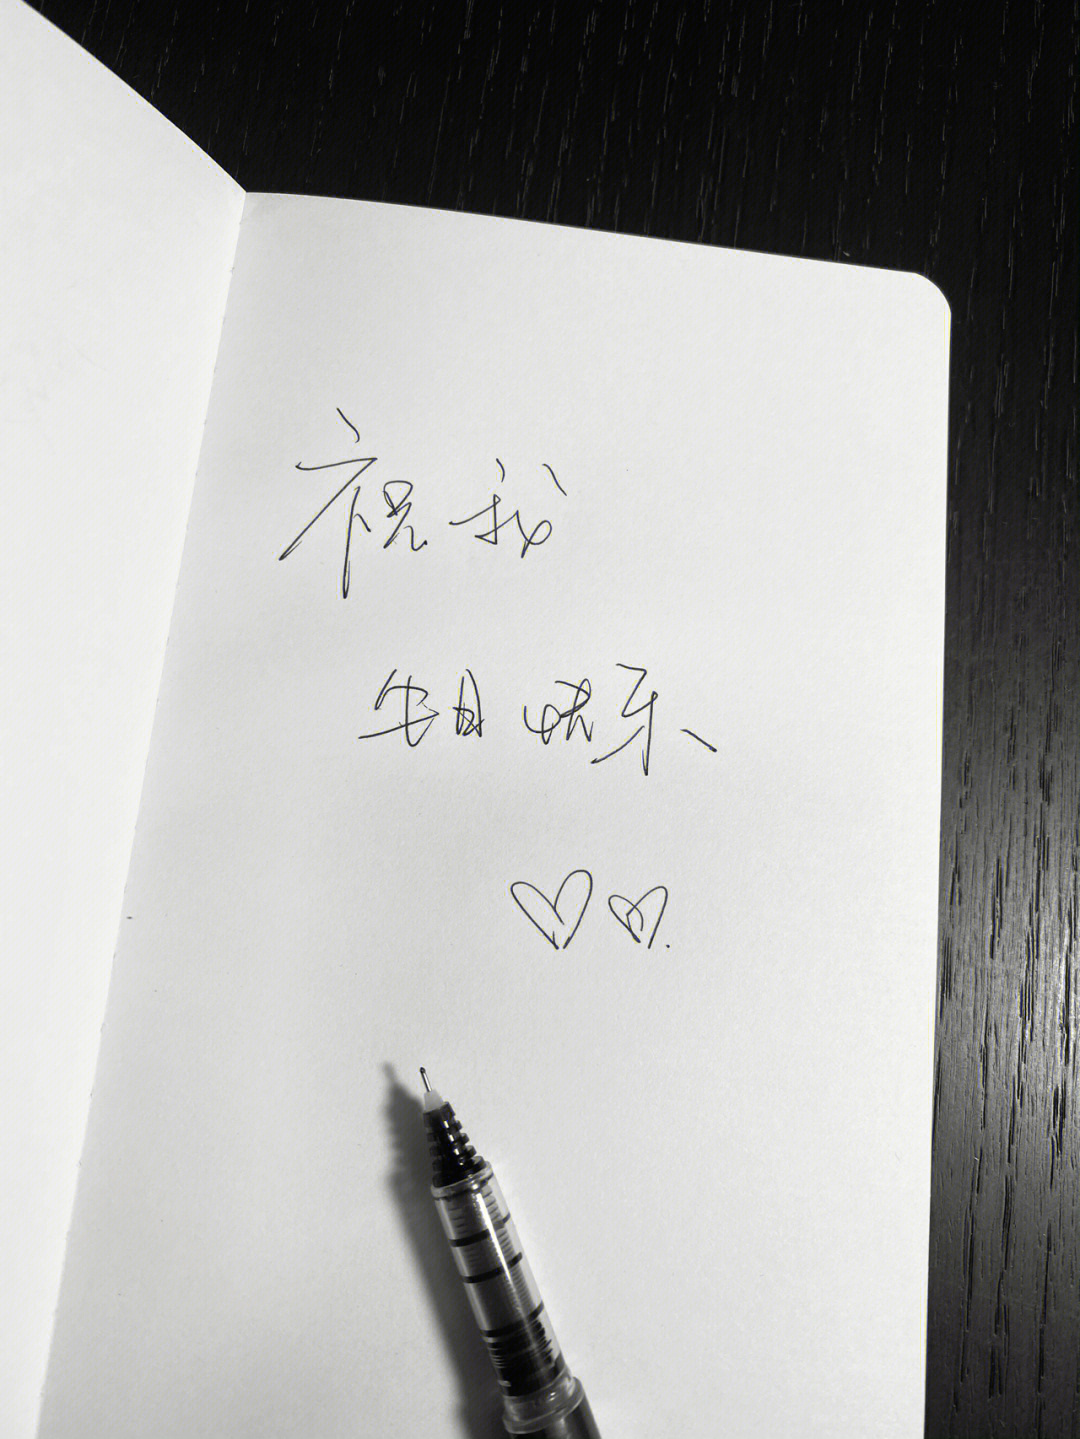 祝我
生日快乐